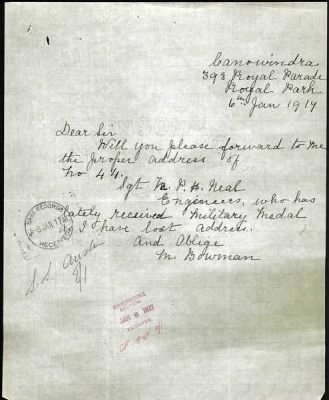 Canowindra
393 Royal Parade
Royal Park
6th Jan 1917
Dear Sir
Will you please forward to me
the proper address of
No 44.
Sgt P. H. Neal
Engineers, who has
lately received Military Medal
I have lost address.
And Oblige
M. Bowman
BASE RECORDS
8 JAN 1917
RECEIVED
JAN 8 1917